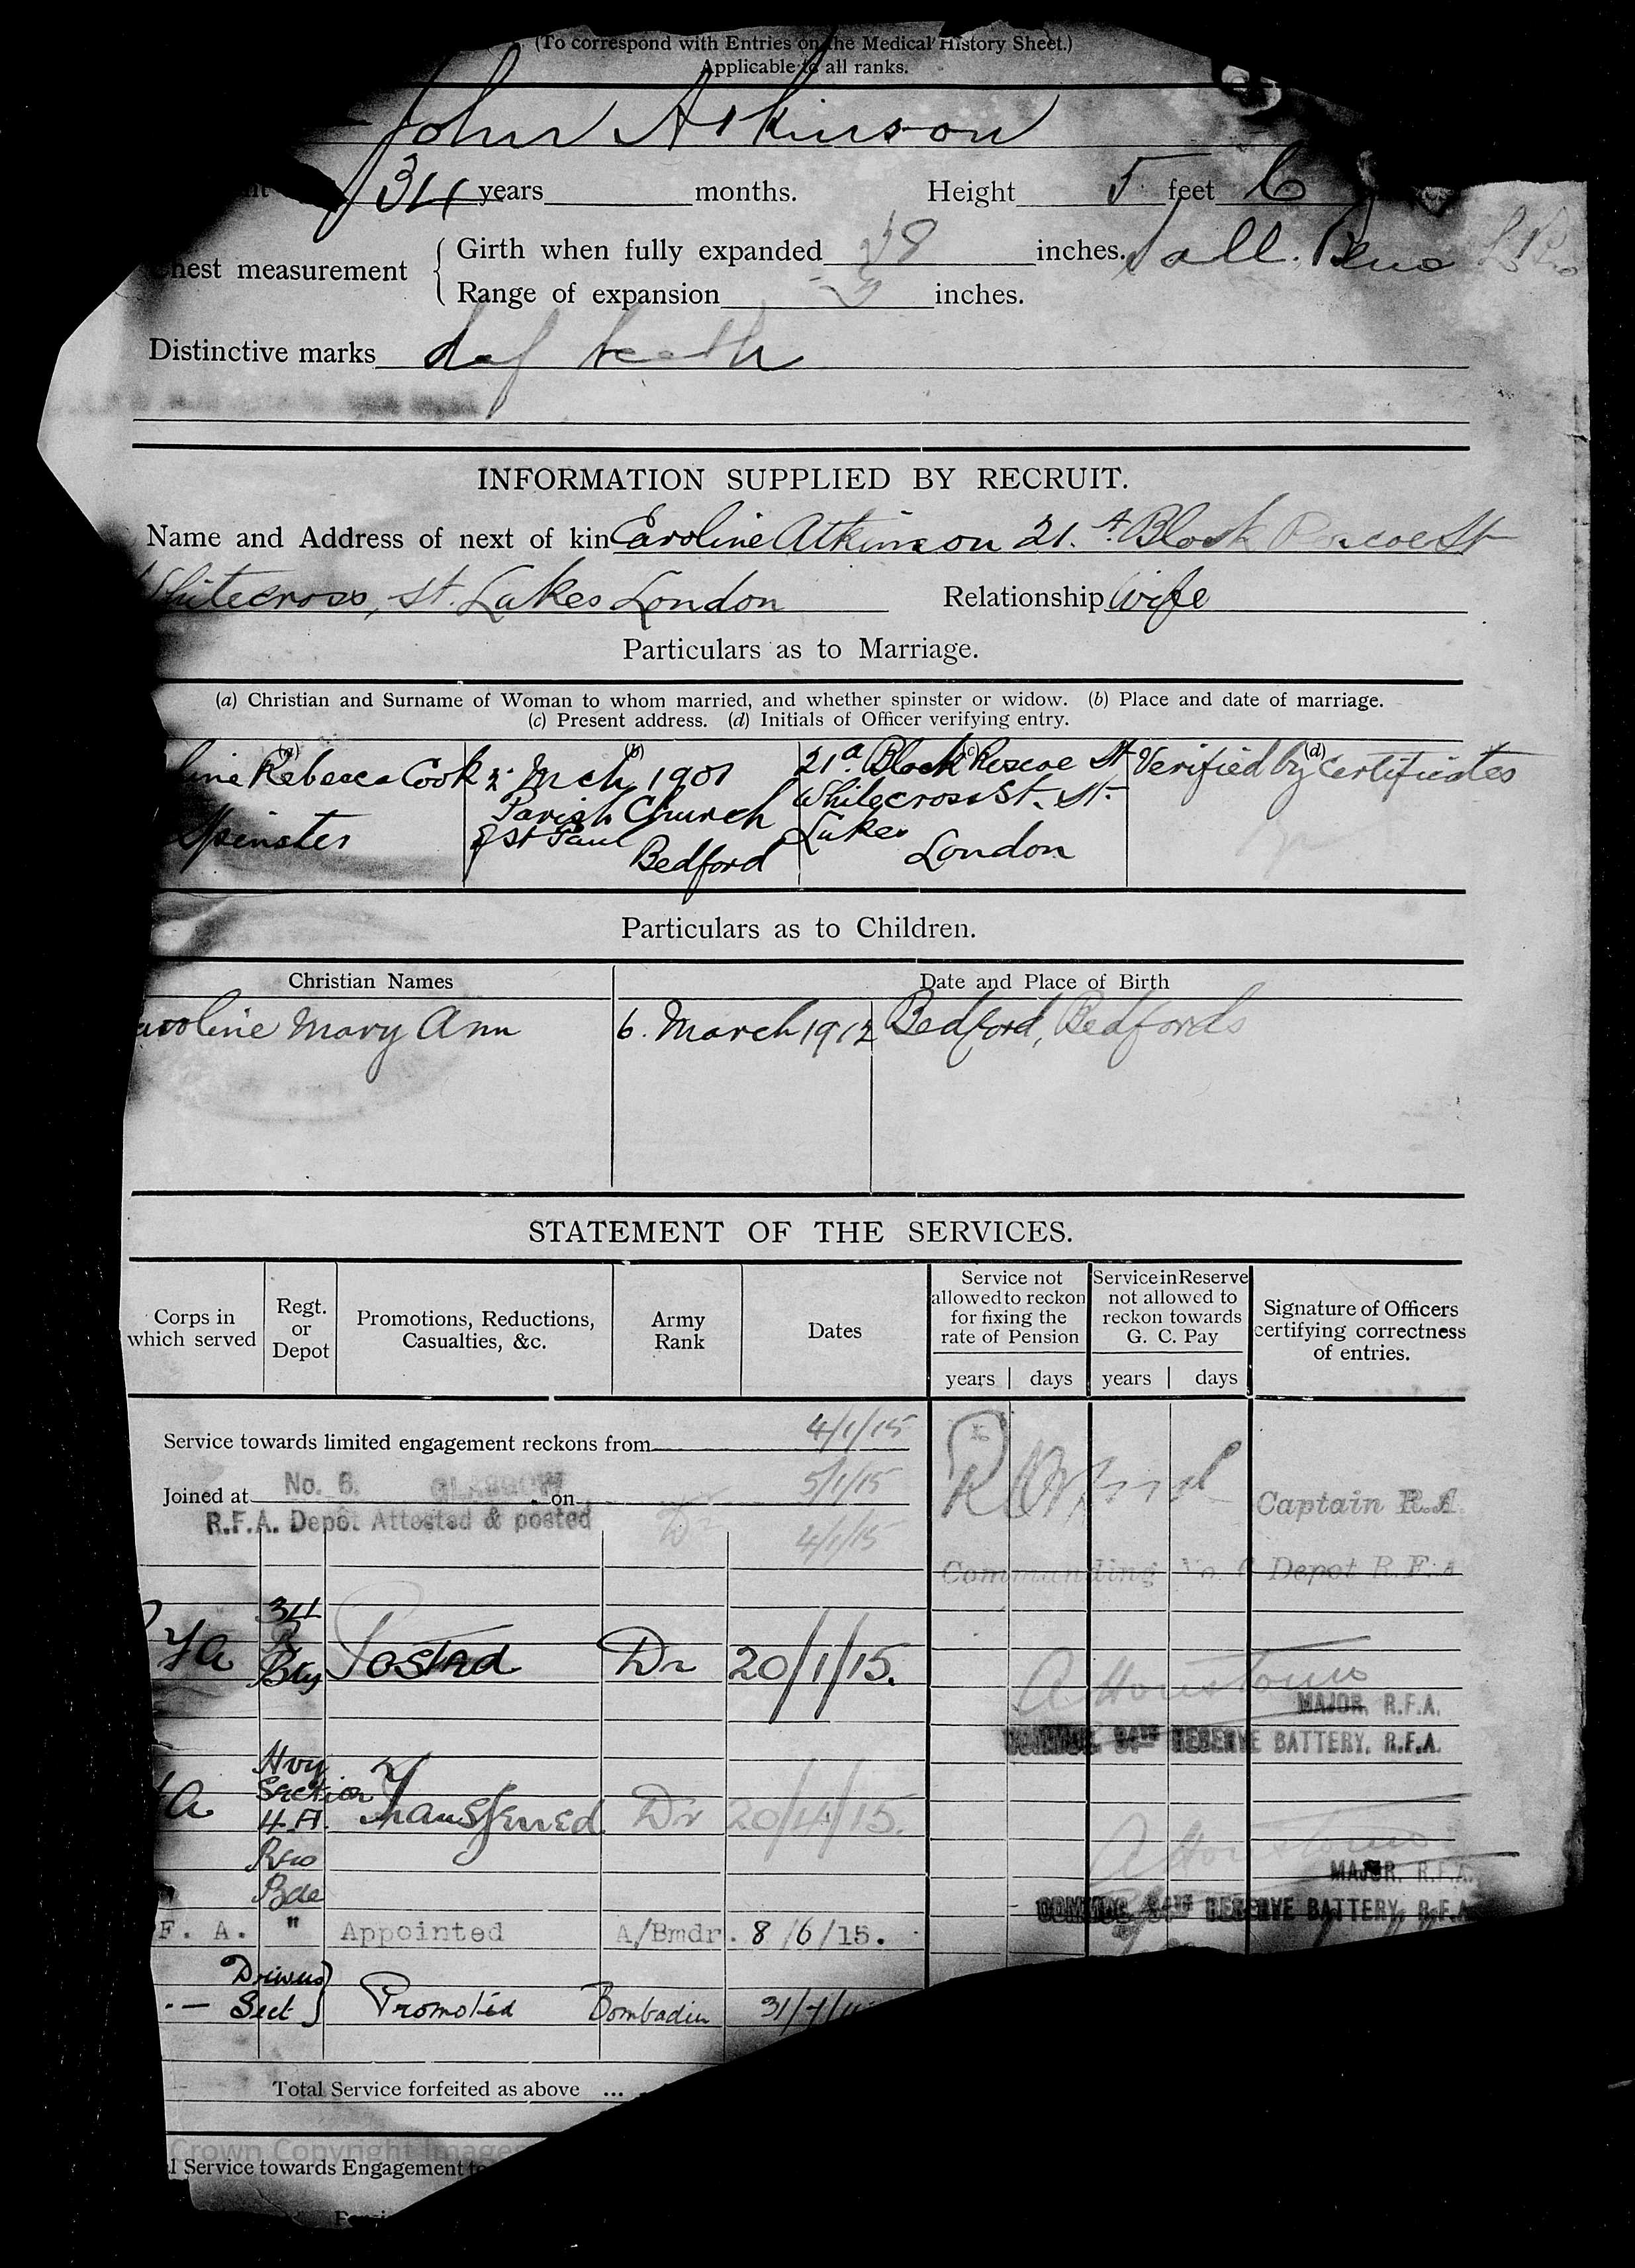 (To correspond with Entries on the Medical History Sheet.)
Applicable to all ranks.
John Atkinson
34 years months. Height 5 feet 6
hest measurement { Girth when fully expanded 38 inches.
Range of expansion 3 inches.
Distinctive marks def teeth
INFORMATION SUPPLIED BY RECRUIT.
Name and Address of next of kin Caroline Atkinson 21. A Block Roscoe St
Whitecross, St. Lukes London Relationship Wife
Particulars as to Marriage.
(a) Christian and Surname of Woman to whom married, and whether spinster or widow. (b) Place and date of marriage.
(c) Present address. (d) Initials of Officer verifying entry.
(a) (b) (c) (d)
line Rebecca Cook 2. Mch 1901 21a. Block Roscoe St Verified by certificates
Parish Church Whitecross St. St.
Spinster of St Paul Lukes
Bedford London
Particulars as to Children.
Christian Names Date and Place of Birth
aroline Mary Ann 6. March 1912 Bedford, Bedfords
STATEMENT OF THE SERVICES.
Corps in which served Regt. or Depot Promotions, Reductions, Casualties, &c. Army Rank Dates Service not allowed to reckon for fixing the rate of Pension Service in Reserve not allowed to reckon towards G. C. Pay Signature of Officers certifying correctness of entries.
years days years days
Service towards limited engagement reckons from 4/1/15
Joined at No. 6. GLASGOW on 5/1/15 Captain R.A.
R.F.A. Depôt Attested & posted Dr 4/1/15
Commanding No. 6 Depot R.F.A
34
Bty Posted Dr 20/1/15.
MAJOR, R.F.A.
COMMDG. 34TH RESERVE BATTERY, R.F.A.
Hvy
Section
4.A. Transferred Dr 20/4/15.
Res
Bde
MAJOR, R.F.A.
COMMDG. 34TH RESERVE BATTERY, R.F.A
F. A. " Appointed A/Bmdr. 8/6/15.
Drivers
Sect } Promoted Bombadier 31/7/1
Total Service forfeited as above ...
Crown Copyright Image
l Service towards Engagement to